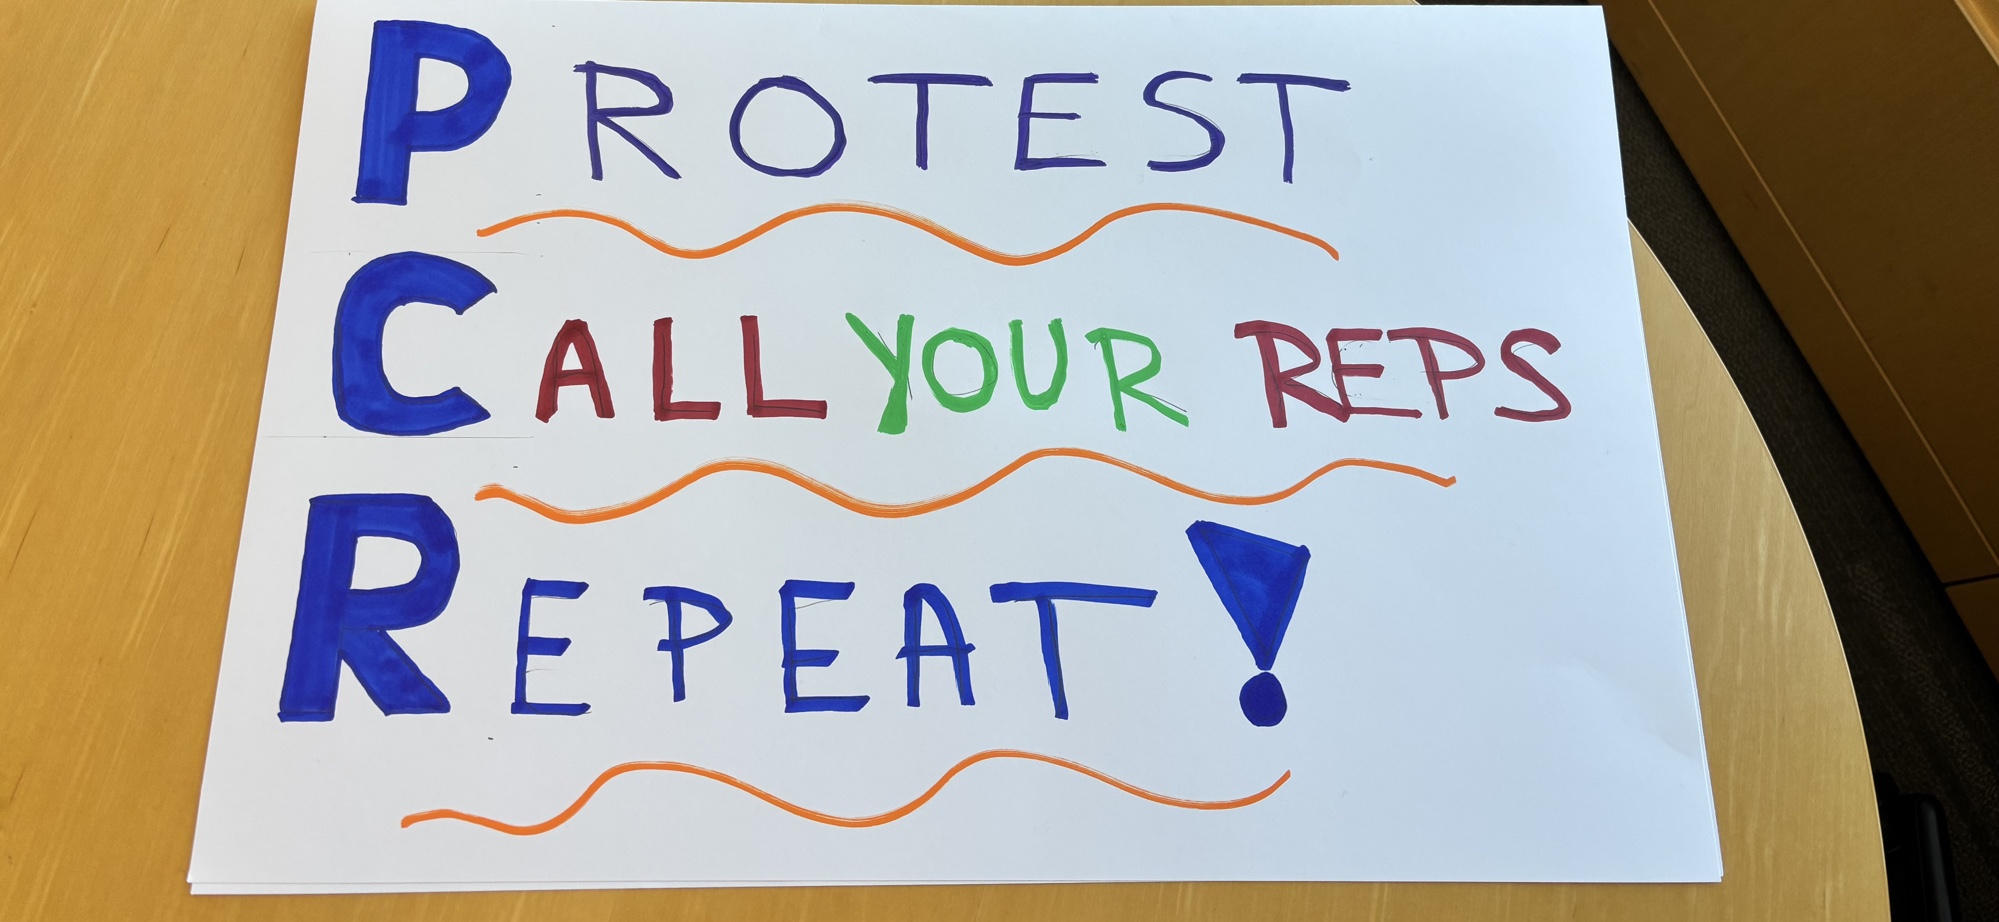 PROTEST
CALL YOUR REPS
REPEAT!